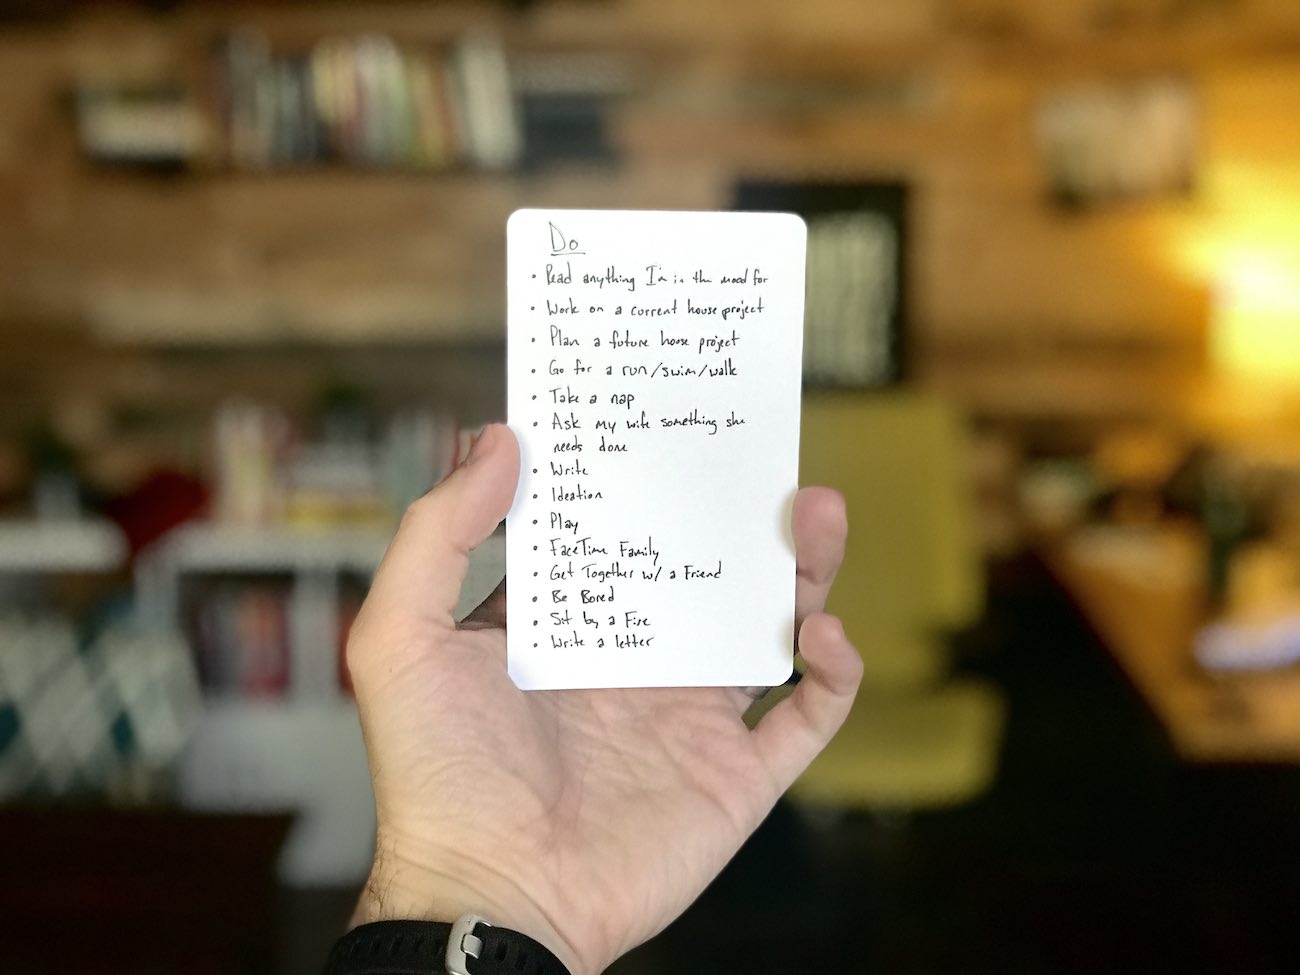 Do
• Read anything I'm in the mood for
• Work on a current house project
• Plan a future house project
• Go for a run/swim/walk
• Take a nap
• Ask my wife something she
needs done
• Write
• Ideation
• Play
• FaceTime Family
• Get Together w/ a Friend
• Be Bored
• Sit by a Fire
• Write a letter